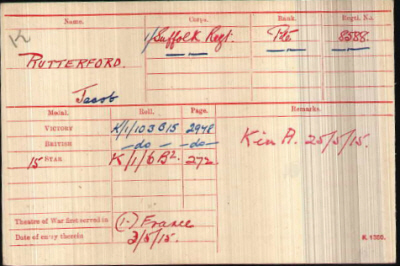 Name. Corps. Rank. Regtl. No.
K 1/Suffolk Regt. Pte 8588.
RUTTERFORD.
Jacob
Medal. Roll. Page. Remarks.
VICTORY K/1/103B15 2948
BRITISH -do- -do-
15 STAR K/1/6B2. 272. Kin A. 25/5/15.
Theatre of War first served in (1-) France
Date of entry therein 3/5/15. K. 1380.